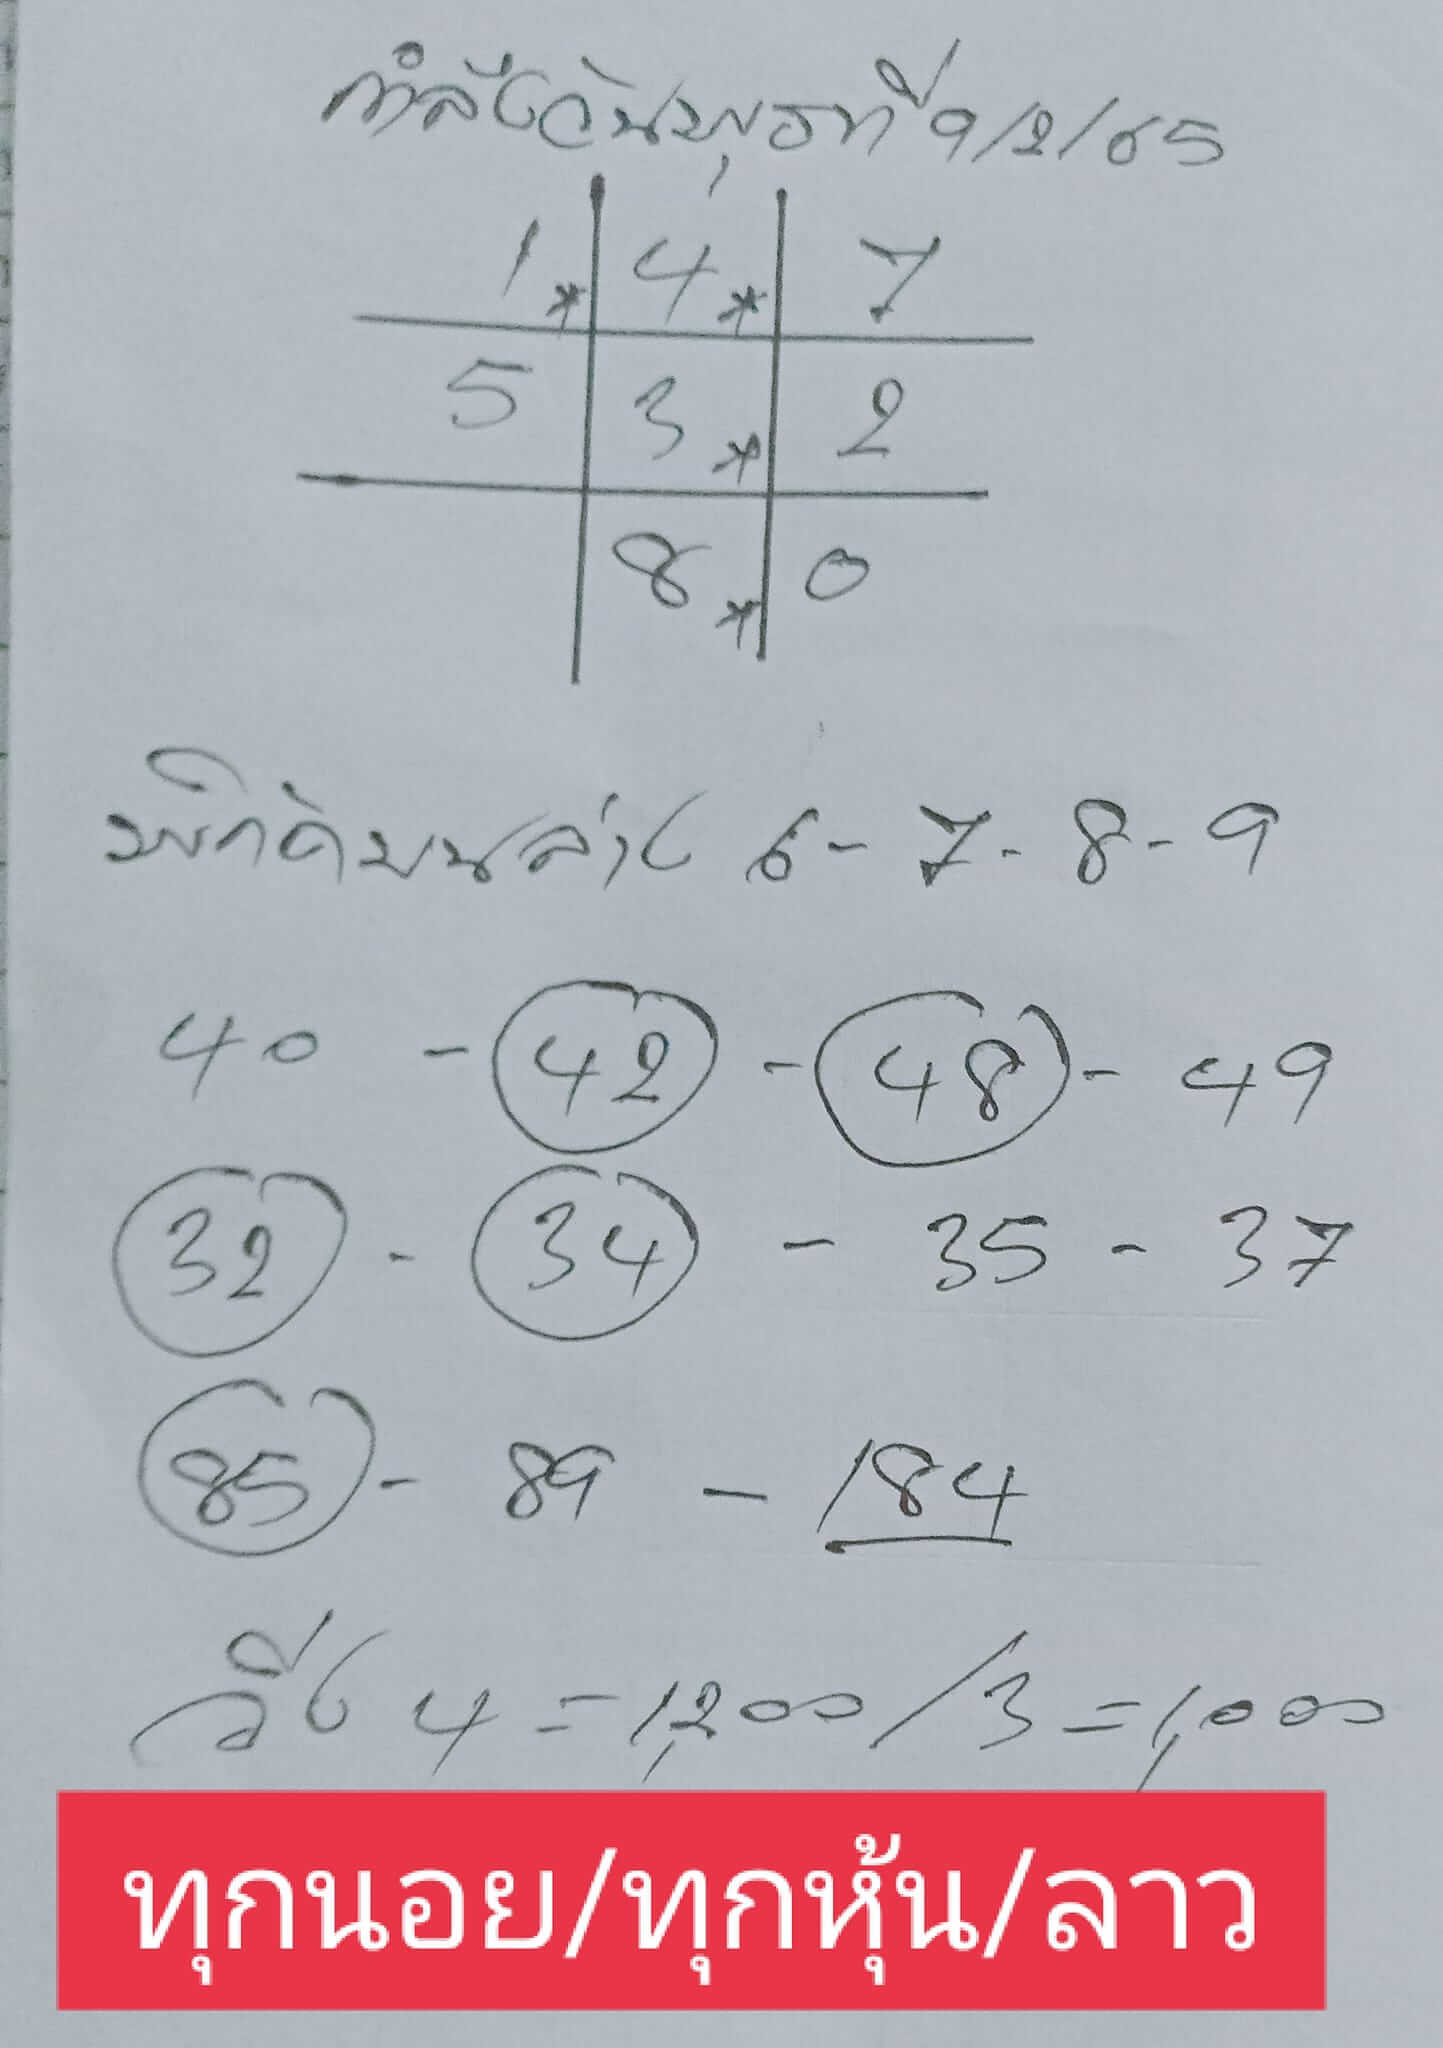 กำลังวันพุธที่ 9/2/65
1* 4* 7
5 3* 2
8* 0
พิกัดบนล่าง 6-7-8-9
40 - 42 - 48 - 49
32 - 34 - 35 - 37
85 - 89 - 184
วิ่ง 4 = 1,200/3 = 1,000
ทุกนอย/ทุกหุ้น/ลาว